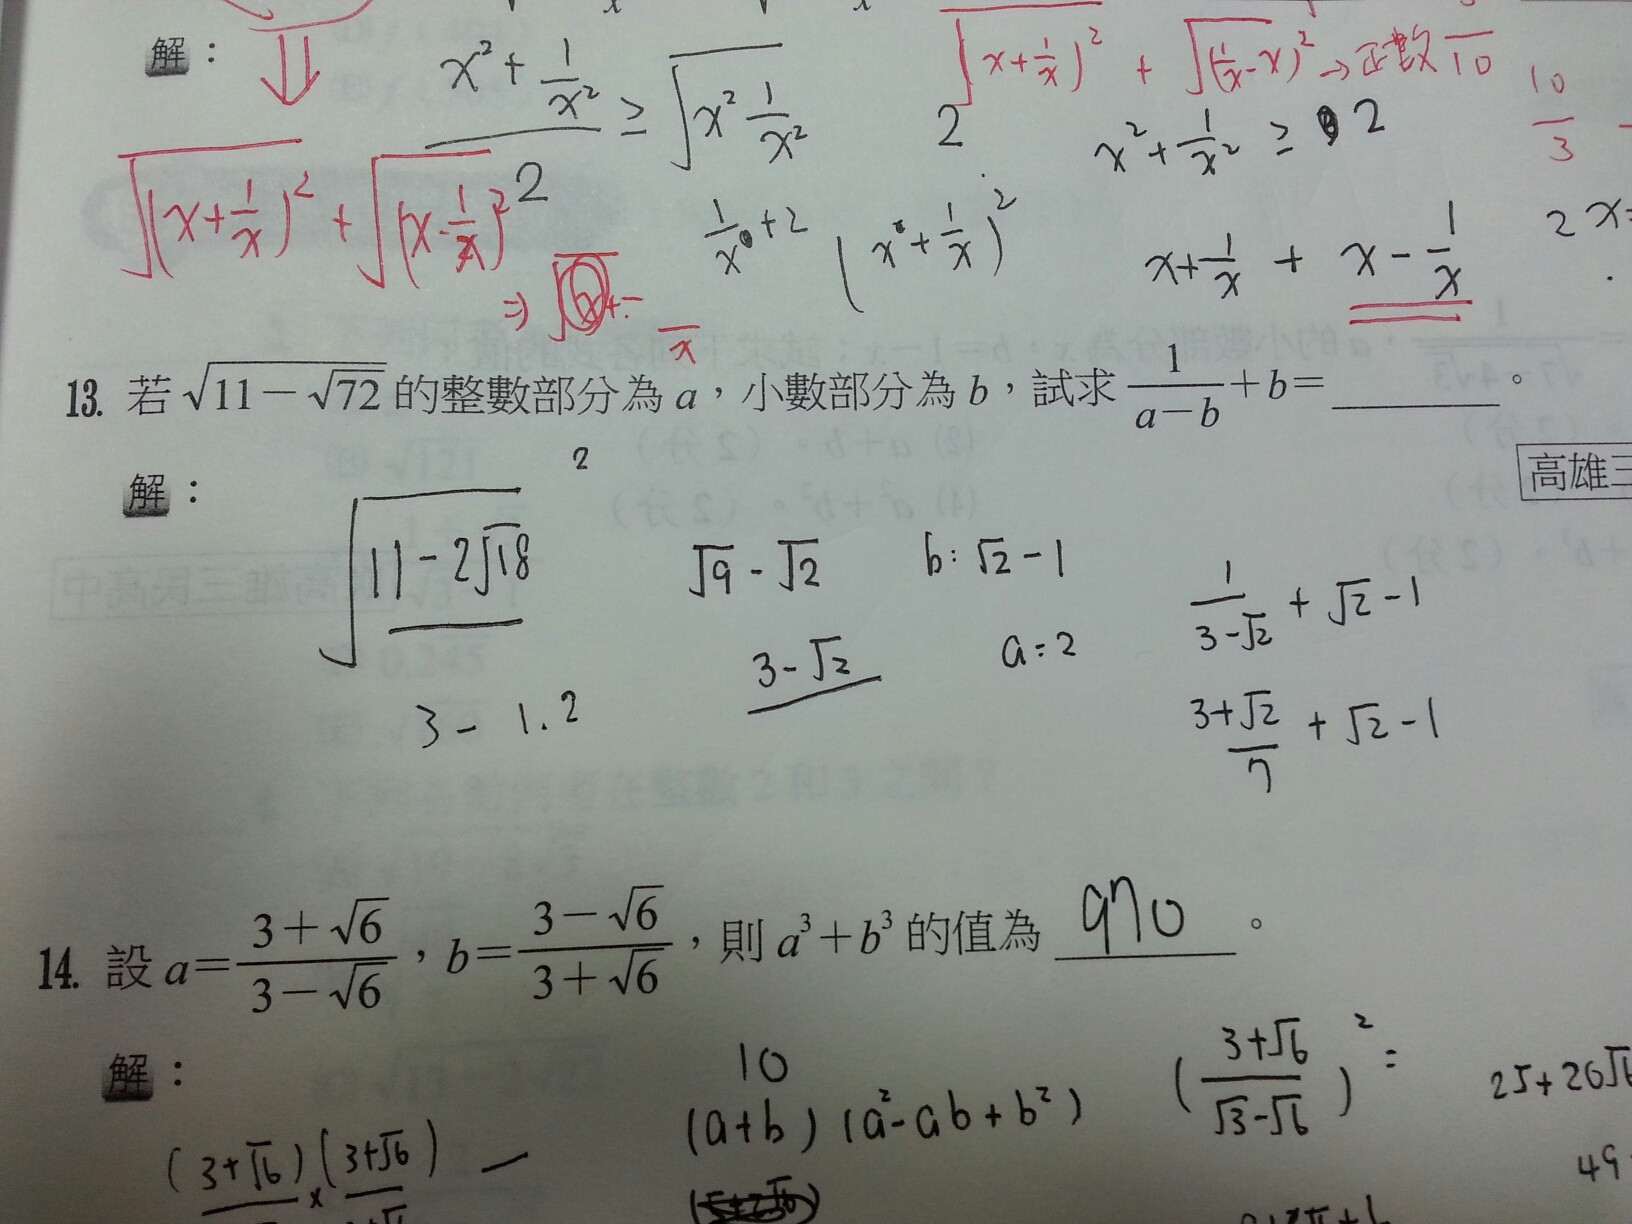 解：
x² + 1/x² ≥ √(x² 1/x²)
√(x+1/x)² + √(1/x-x)² → 正數
10
10/3
2
x² + 1/x² ≥ 2
√(x+1/x)² + √(x-1/x)²
2
1/x +2
(x+1/x)²
x+1/x + x-1/x
2x
13. 若 √(11-√72) 的整數部分為 a，小數部分為 b，試求 1/(a-b) + b = ______。
高雄三
解：
2
√(11-2√18)
√9 - √2
b: √2 - 1
1/(3-√2) + √2 - 1
3-√2
a = 2
3 - 1.2
(3+√2)/7 + √2 - 1
14. 設 a = (3+√6)/(3-√6)，b = (3-√6)/(3+√6)，則 a³+b³ 的值為 970。
解：
10
(a+b)(a²-ab+b²)
((3+√6)/(√3-√6))² =
25+20√6
(3+√6)(3+√6) -
49